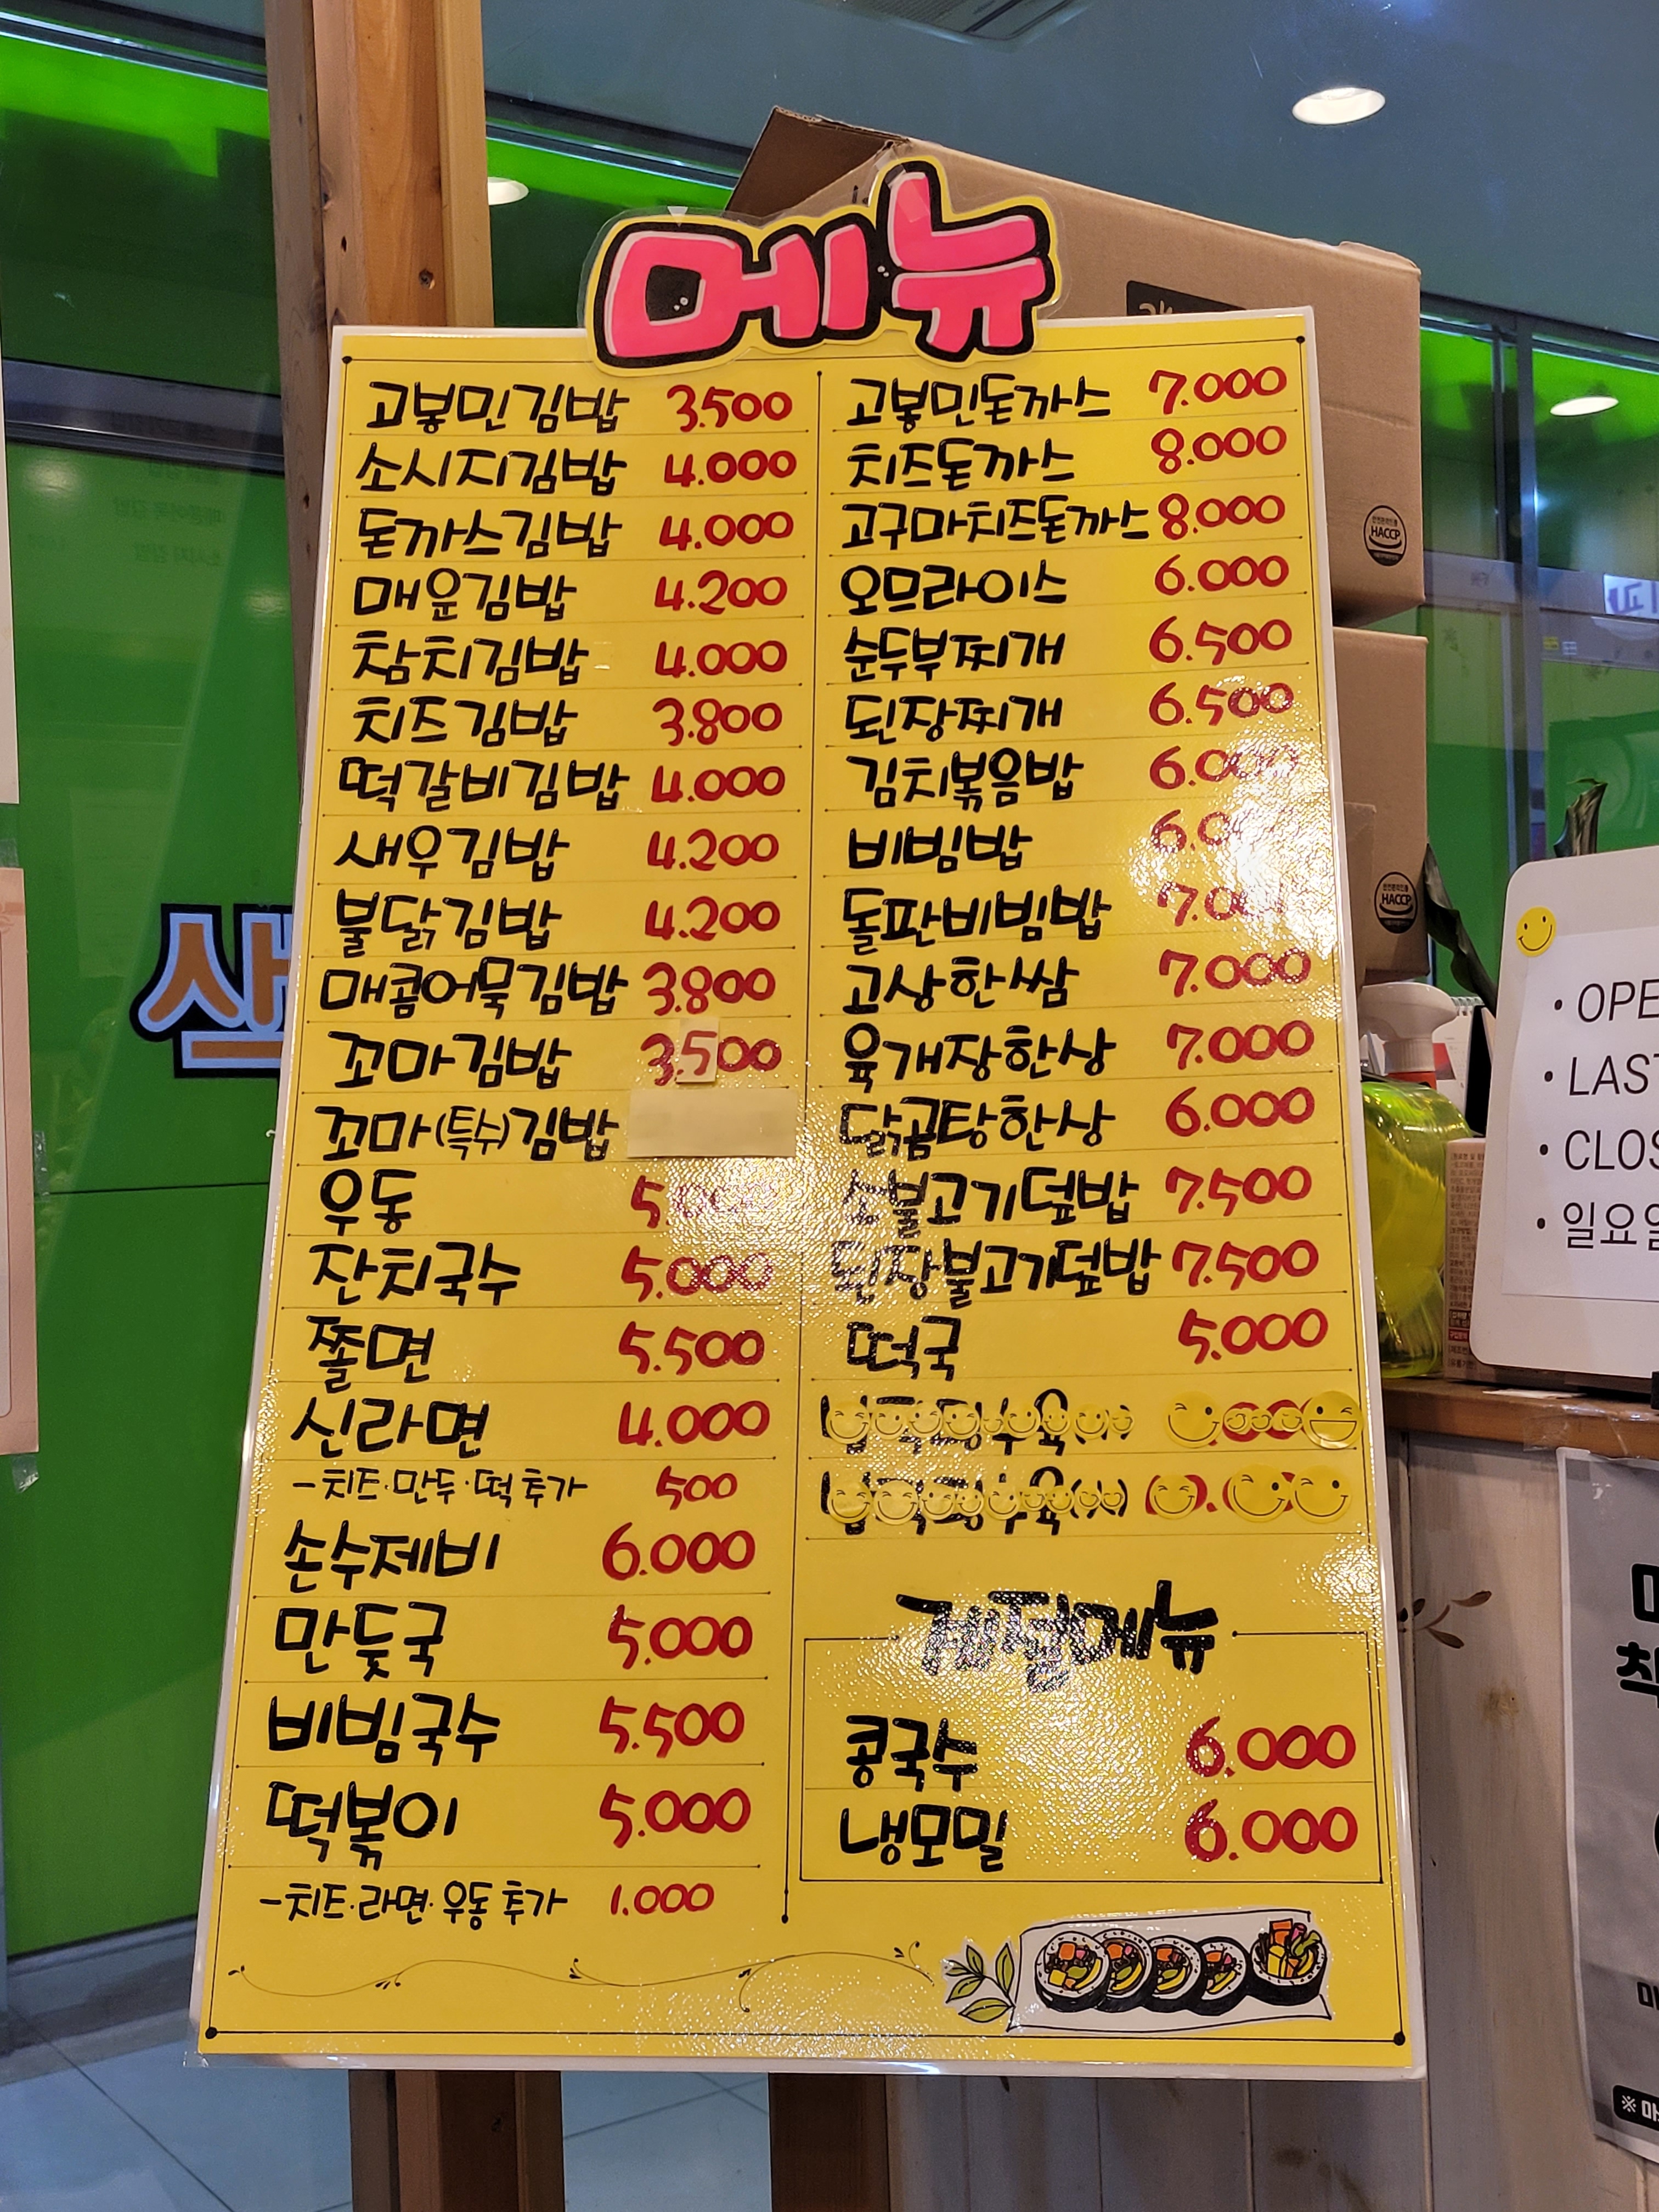 메뉴
고봉민김밥 3.500
소시지김밥 4.000
돈까스김밥 4.000
매운김밥 4.200
참치김밥 4.000
치즈김밥 3.800
떡갈비김밥 4.000
새우김밥 4.200
불닭김밥 4.200
매콤어묵김밥 3.800
꼬마김밥 3.500
꼬마(특수)김밥
우동 5.000
잔치국수 5.000
쫄면 5.500
신라면 4.000
-치즈·만두·떡 추가 500
손수제비 6.000
만둣국 5.000
비빔국수 5.500
떡볶이 5.000
-치즈·라면·우동 추가 1.000
고봉민돈까스 7.000
치즈돈까스 8.000
고구마치즈돈까스 8.000
오므라이스 6.000
순두부찌개 6.500
된장찌개 6.500
김치볶음밥 6.000
비빔밥 6.0
돌판비빔밥 7.00
고상한쌈 7.000
육개장한상 7.000
닭곰탕한상 6.000
소불고기덮밥 7.500
된장불고기덮밥 7.500
떡국 5.000
계절메뉴
콩국수 6.000
냉모밀 6.000
HACCP
HACCP
• OPE
• LAST
• CLOS
• 일요일